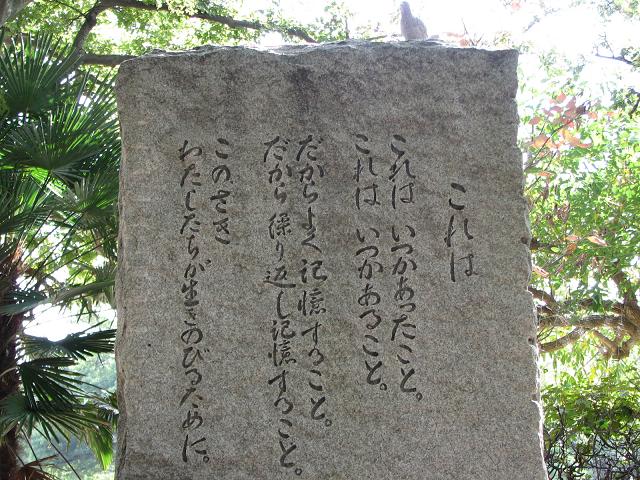 これは
これは いつかあったこと。
これは いつかあること。
だからよく記憶すること。
だから繰り返し記憶すること。
このさき
わたしたちが生きのびるために。